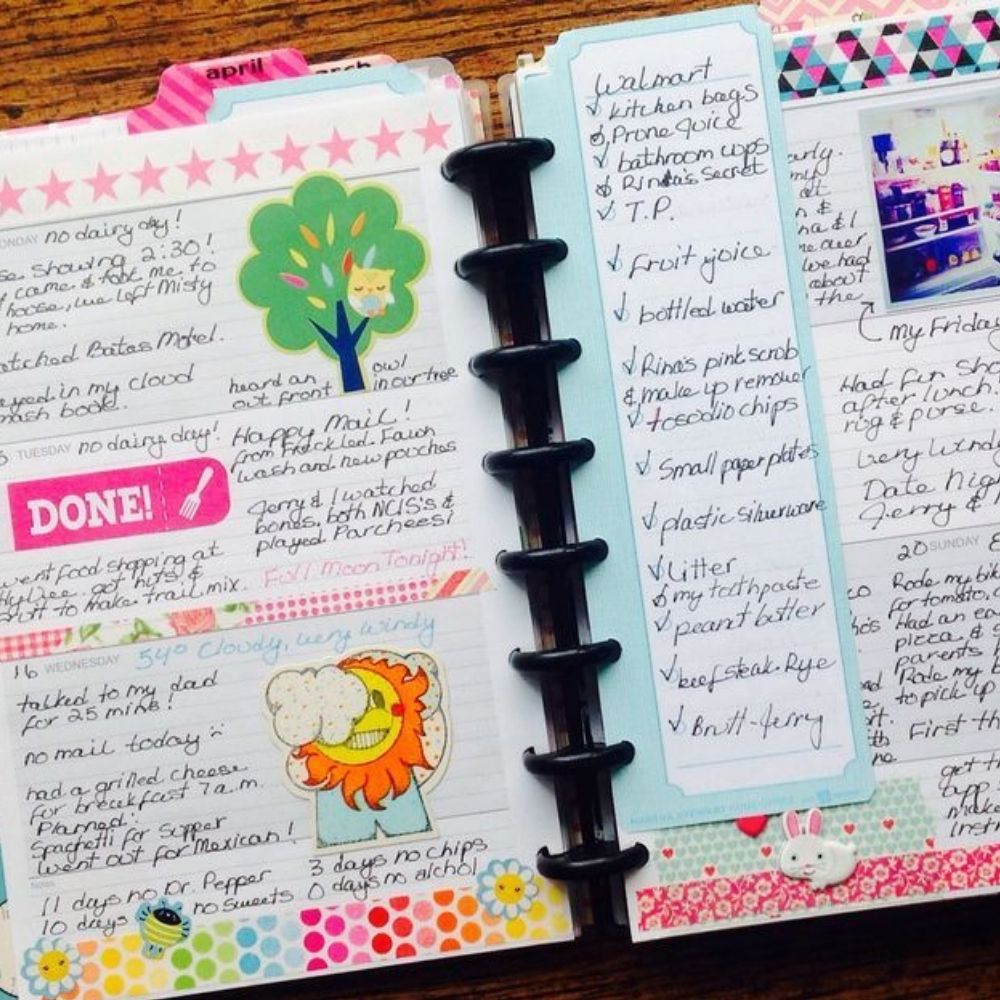 april
arch
ONDAY no dairy day!
se showing 2:30!
came & took me to
house, we left Misty
home.
atched Batas Motel.
yed in my cloud
mash book.
heard an owl
out front in our tree
TUESDAY no dairy day!
DONE!
Happy Mail!
from Freckled Fawn
washand new pouches
Jerry & I watched
bones, both NCIS's &
played Parcheesi
went food shopping at
HyVee. got nuts &
stuff to make trail mix.
Full Moon Tonight!
16 WEDNESDAY 54° Cloudy, very windy
talked to my dad
for 25 mins!
no mail today
had a grilled cheese
for breakfast 7 a.m.
Planned:
Spaghetti for Supper
went out for Mexican!
NOTES
11 days no Dr. Pepper
10 days no sweets
3 days no chips
0 days no alchol
Walmart
kitchen bags
Prone Juice
bathroom cups
Rina's Secret
T.P.
Fruit joice
bottled water
Rina's pink scrub
& make up remover
tosodio chips
Small paper plates
plastic silverware
Litter
my toothpaste
peanut butter
beef steak. Rye
Brutt-Jerry
arly.
my
at
n &
na & I
me over
we had
about
the
my Friday
Had fun sho
after lunch.
rug & purse.
very wind
Date Nig
Jerry &
20 SUNDAY
Rode my bik
for tomato,
Had an ea
pizza, &
parents
Rode my b
to pick up
First th
get th
app
make
Inst